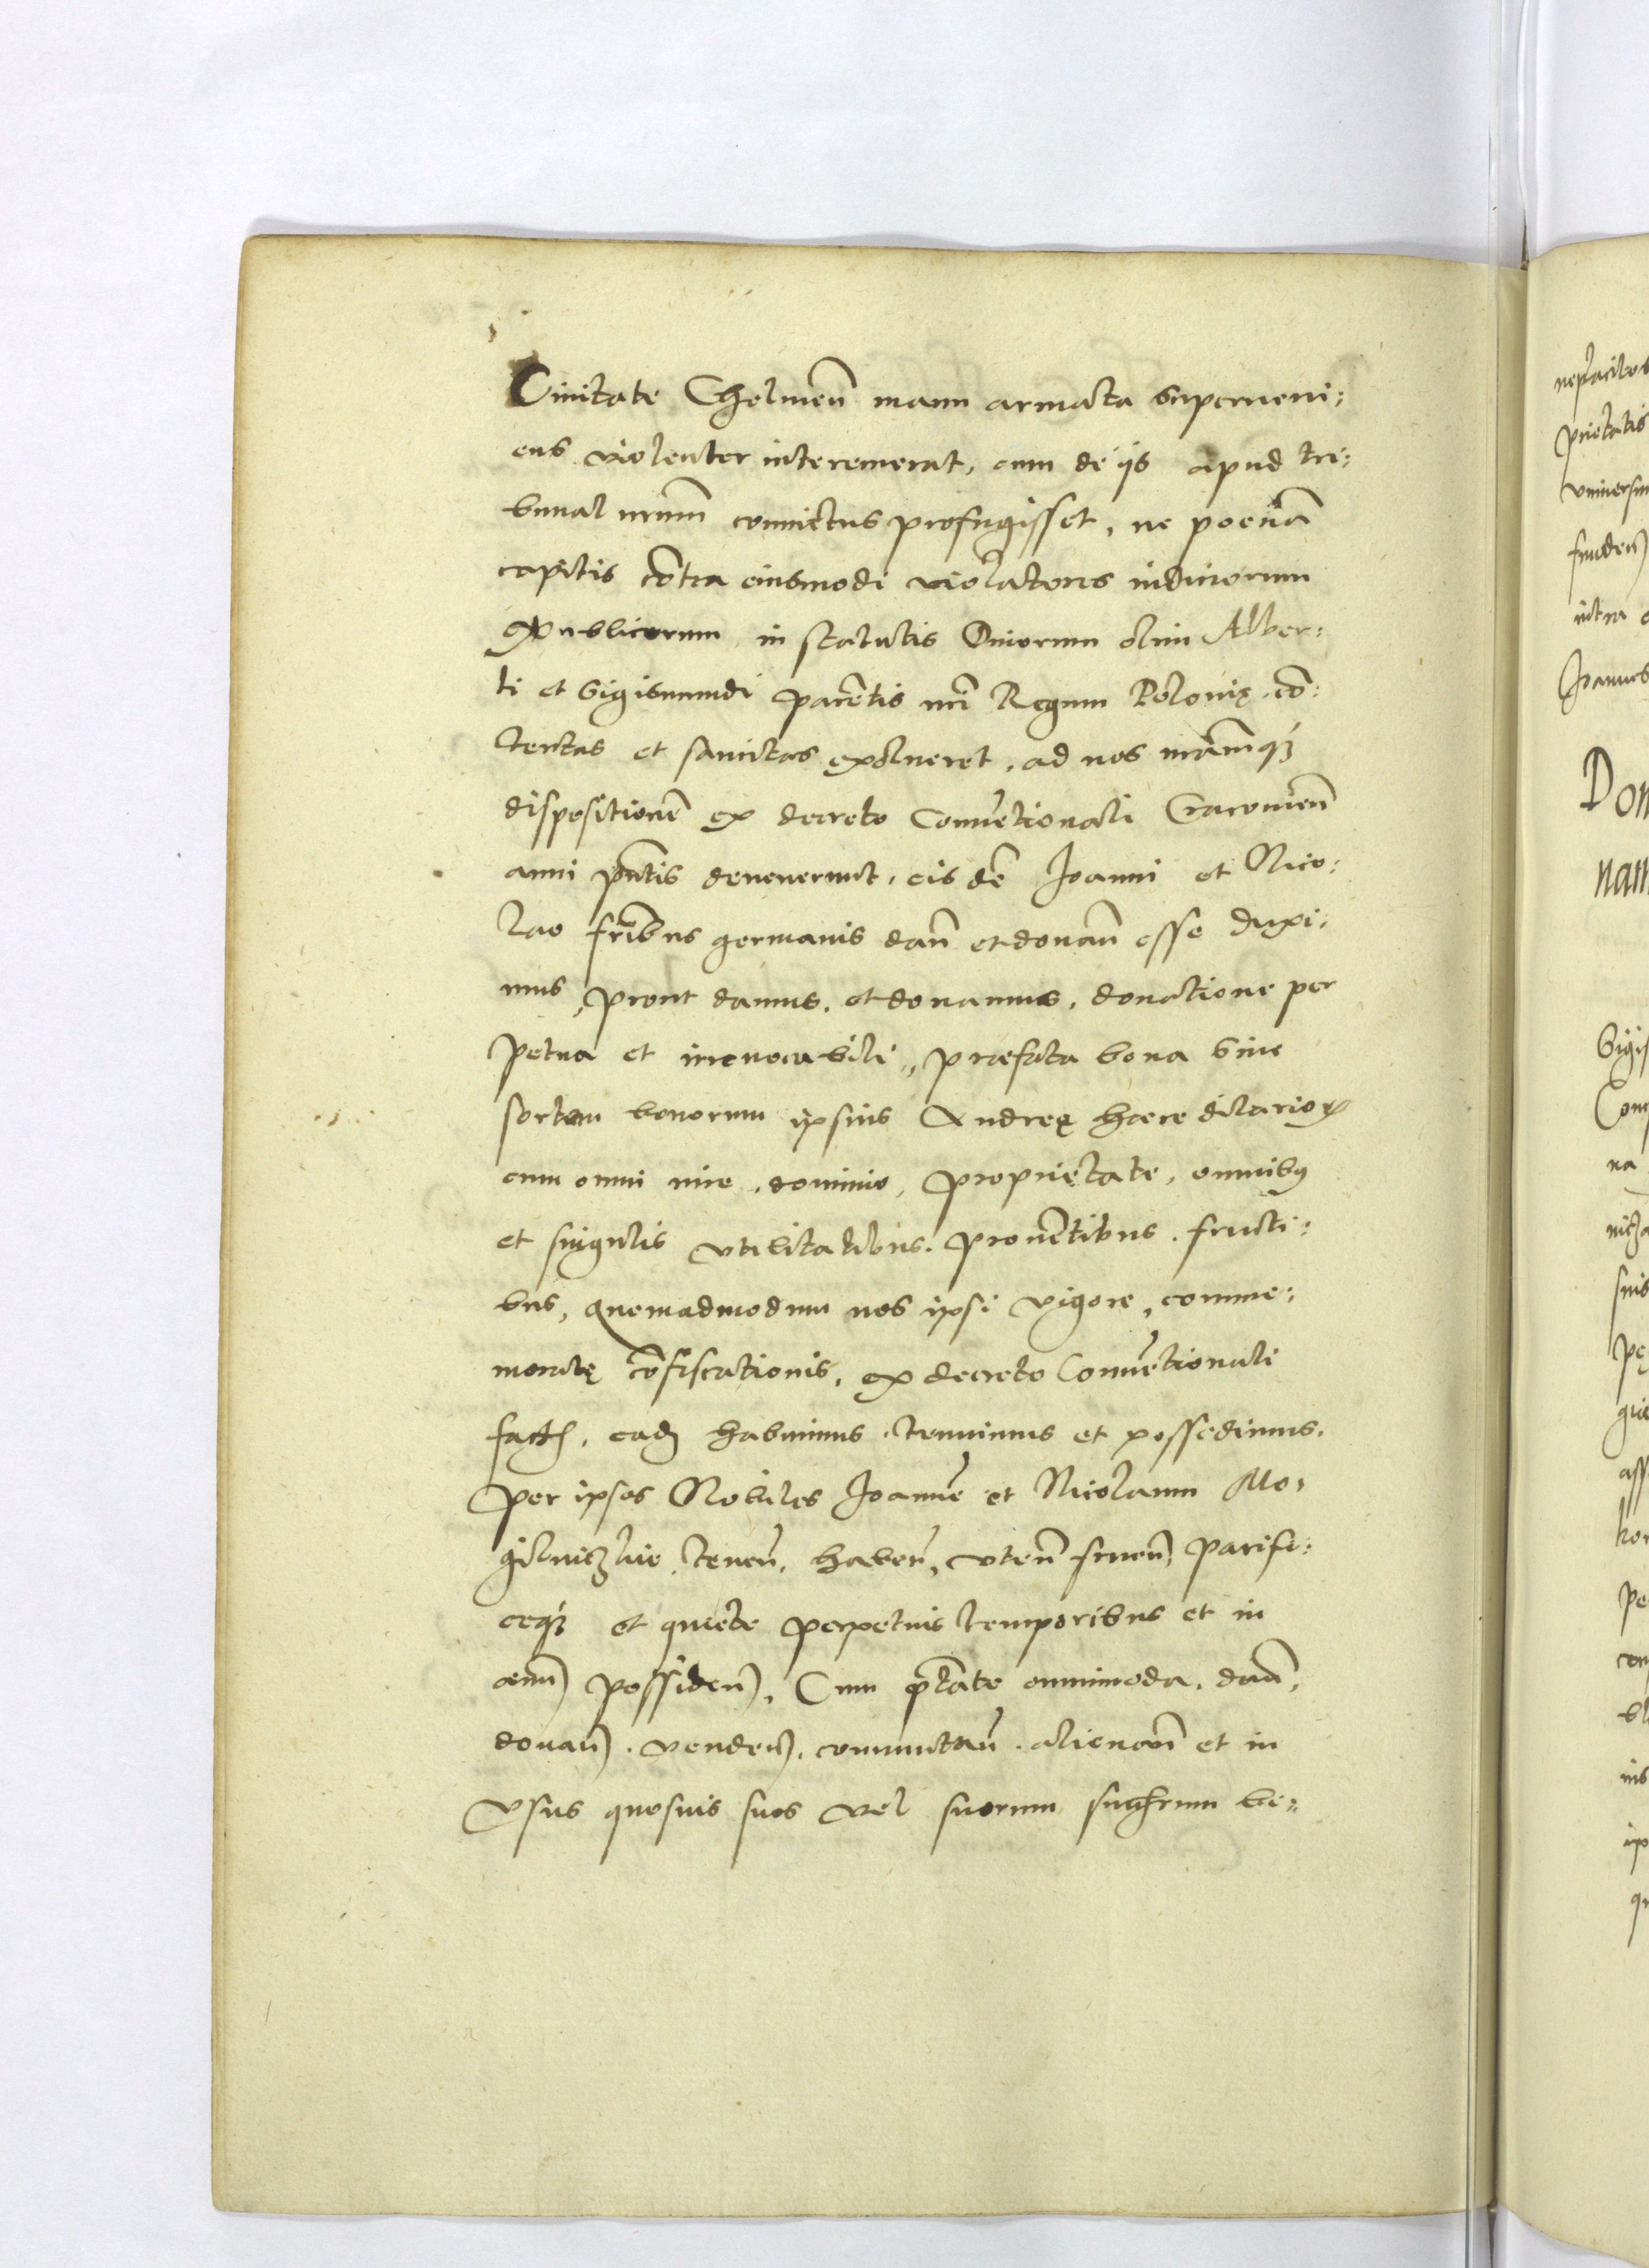 Ciuitate Chelmeñ manu armata superueni:
ens violenter interemerat, cum de ijs apud tri:
bunal nrum̃ conuictus profugisset, ne poenã
capitis cõtra eiusmodi violatores iudiciorum
publicorum in statutis Diuorum olim Alber:
ti et Sigismundi parẽtis nri̅ Regum Polonię cõ:
tentas et sancitas exolueret, ad nos nramq́;
dispositionẽ ex decreto Conuẽtionali Cracouieñ
anni pñtis deuenerunt, eisdẽ Joanni et Nico:
lao fr̃ibus germanis dañ et donañ esse duxi:
mus, prout damus, et donamus, donatione per
petua et irreuocabili, præfata bona siue
sortem bonorum ipsius Andreę hæreditarioꝝ
cum omni iure, dominio, proprietate, omnibꝰ
et singulis vtilitatibus, prouẽtibus, fructi:
bus, quemadmodum nos ipsi vigore, comme:
moratę cõfiscationis, ex decreto Conuẽtionali
factę, eadẽ habuimus, tenuimus et possedimus,
per ipsos Nobiles Joannẽ et Nicolaum Mo,
teneñ, habeñ, vteñ frueñ, pacifi:
ceq́; et quiete perpetuis temporibus et in
æuũ possideñ. Cum ptãte omnimoda, dañ,
donañ, vendeñ, commutañ, alienañ et in
Vsus quosuis suos vel suorum succsrum be:
nepłacitos
prietatis
vniuersu
frueden
Joannes
Dom
nam
Sigis
Com
na
suis
pe